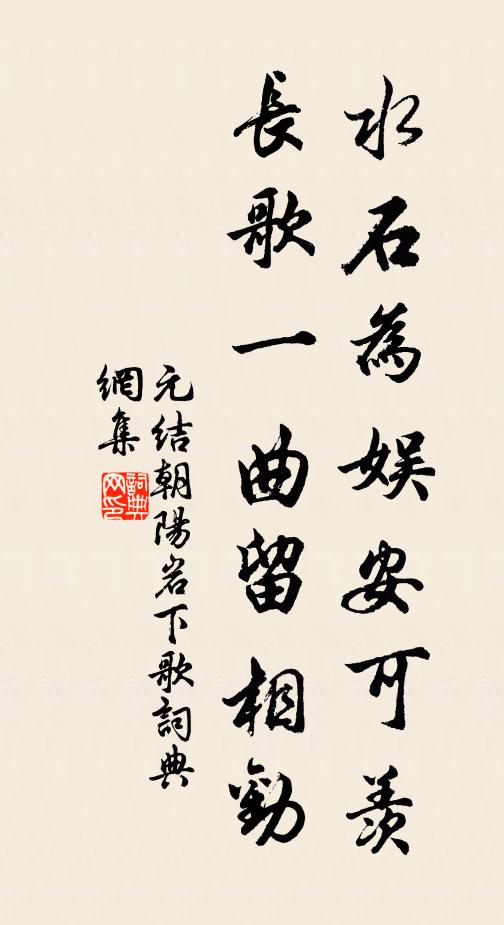 水石為娛安可羨
長歌一曲留相勸
元結朝陽岩下歌詞典
網集
詞典
网印